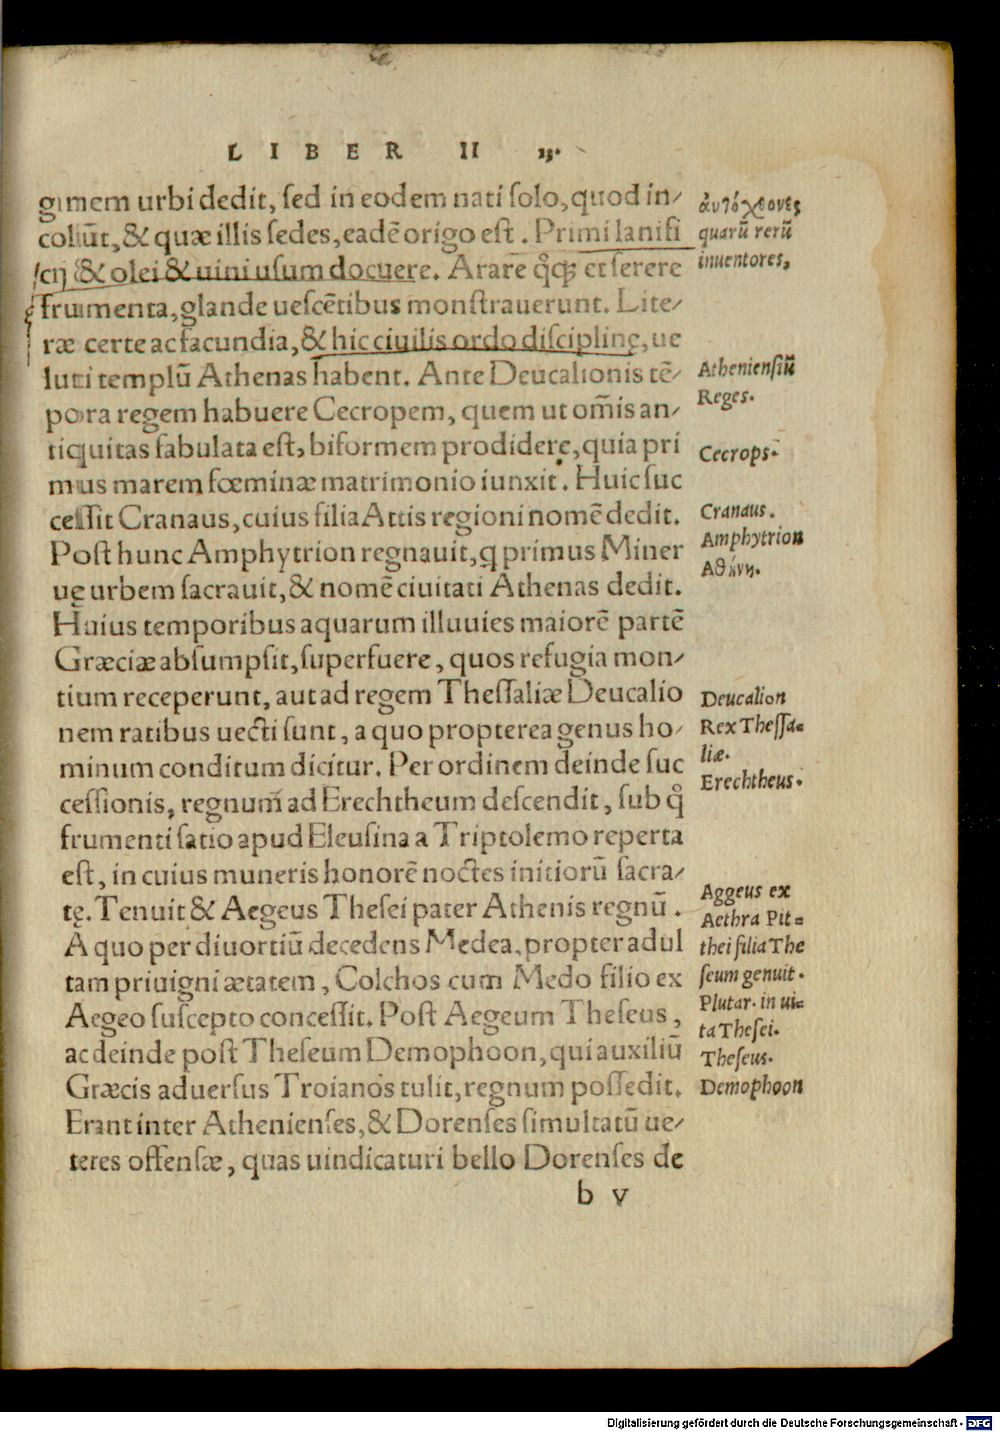 LIBER II 13.
gimem urbi dedit, ſed in eodem nati ſolo, quod in/
colūt, & quæ illis ſedes, eadē origo eſt. Primi lanifi
cij & olei & uini uſum docuere. Arare qͦqꝫ et ſerere
frumenta, glande ueſcētibus monſtrauerunt. Lite/
ræ certe ac facundia, & hic ciuilis ordo diſciplinę, ue
luti templū Athenas habent. Ante Deucalionis tē/
pora regem habuere Cecropem, quem ut om̄is an/
tiquitas fabulata eſt, biformem prodidere, quia pri
mus marem fœminæ matrimonio iunxit. Huic ſuc
ceſſit Cranaus, cuius filia Attis regioni nomē dedit.
Poſt hunc Amphytrion regnauit, q primus Miner
uę urbem ſacrauit, & nomē ciuitati Athenas dedit.
Huius temporibus aquarum illuuies maiorē partē
Græciæ abſumpſit, ſuperfuere, quos refugia mon/
tium receperunt, aut ad regem Theſſaliæ Deucalio
nem ratibus uecti ſunt, a quo propterea genus ho/
minum conditum dicitur. Per ordinem deinde ſuc
ceſſionis, regnum ad Erechtheum deſcendit, ſub qͦ
frumenti ſatio apud Eleuſina a Triptolemo reperta
eſt, in cuius muneris honorē noctes initiorū ſacra/
tę. Tenuit & Aegeus Theſei pater Athenis regnū.
A quo per diuortiū decedens Medea, propter adul
tam priuigni ætatem, Colchos cum Medo filio ex
Aegeo ſuſcepto conceſſit. Poſt Aegeum Theſeus,
ac deinde poſt Theſeum Demophoon, qui auxiliū
Græcis aduerſus Troianos tulit, regnum poſſedit.
Erant inter Athenienſes, & Dorenſes ſimultatū ue/
teres offenſæ, quas uindicaturi bello Dorenſes de
b v
ἀυτόχθονες
quarū rerū
inuentores,
Athenienſiū
Reges.
Cecrops.
Cranaus.
Amphytrion
Αθήνη.
Deucalion
Rex Theſſa=
liæ.
Erechtheus.
Aggeus ex
Aethra Pit=
thei filia The
ſeum genuit.
Plutar. in ui=
ta Theſei.
Theſeus.
Demophoon
Digitalisierung gefördert durch die Deutsche Forschungsgemeinschaft - DFG